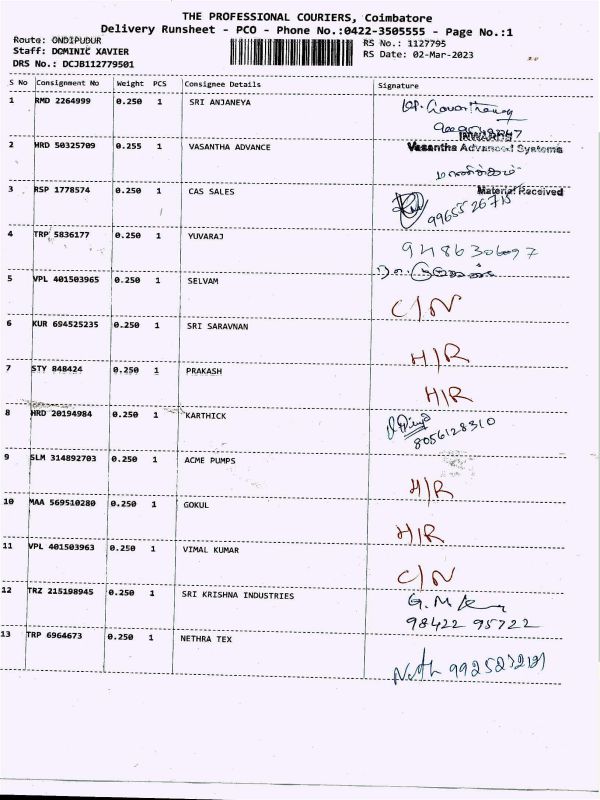 THE PROFESSIONAL COURIERS, Coimbatore
Delivery Runsheet - PCO - Phone No.:0422-3505555 - Page No.:1
Route: ONDIPUDUR
RS No.: 1127795
Staff: DOMINIC XAVIER
RS Date: 02-Mar-2023
DRS No.: DCJB112779501
S No Consignment No Weight PCS Consignee Details Signature
1 RMD 2264999 0.250 1 SRI ANJANEYA
2 HRD 50325709 0.255 1 VASANTHA ADVANCE
INWARDS
Vasantha Advanced Systems
Material Received
3 RSP 1778574 0.250 1 CAS SALES
4 TRP 5836177 0.250 1 YUVARAJ
5 VPL 401503965 0.250 1 SELVAM C/N
6 KUR 694525235 0.250 1 SRI SARAVNAN H/R
7 STY 848424 0.250 1 PRAKASH H/R
8 HRD 20194984 0.250 1 KARTHICK
8056128310
9 SLM 314892703 0.250 1 ACME PUMPS H/R
10 MAA 569510280 0.250 1 GOKUL H/R
11 VPL 401503963 0.250 1 VIMAL KUMAR C/N
12 TRZ 215198945 0.250 1 SRI KRISHNA INDUSTRIES
98422 95722
13 TRP 6964673 0.250 1 NETHRA TEX